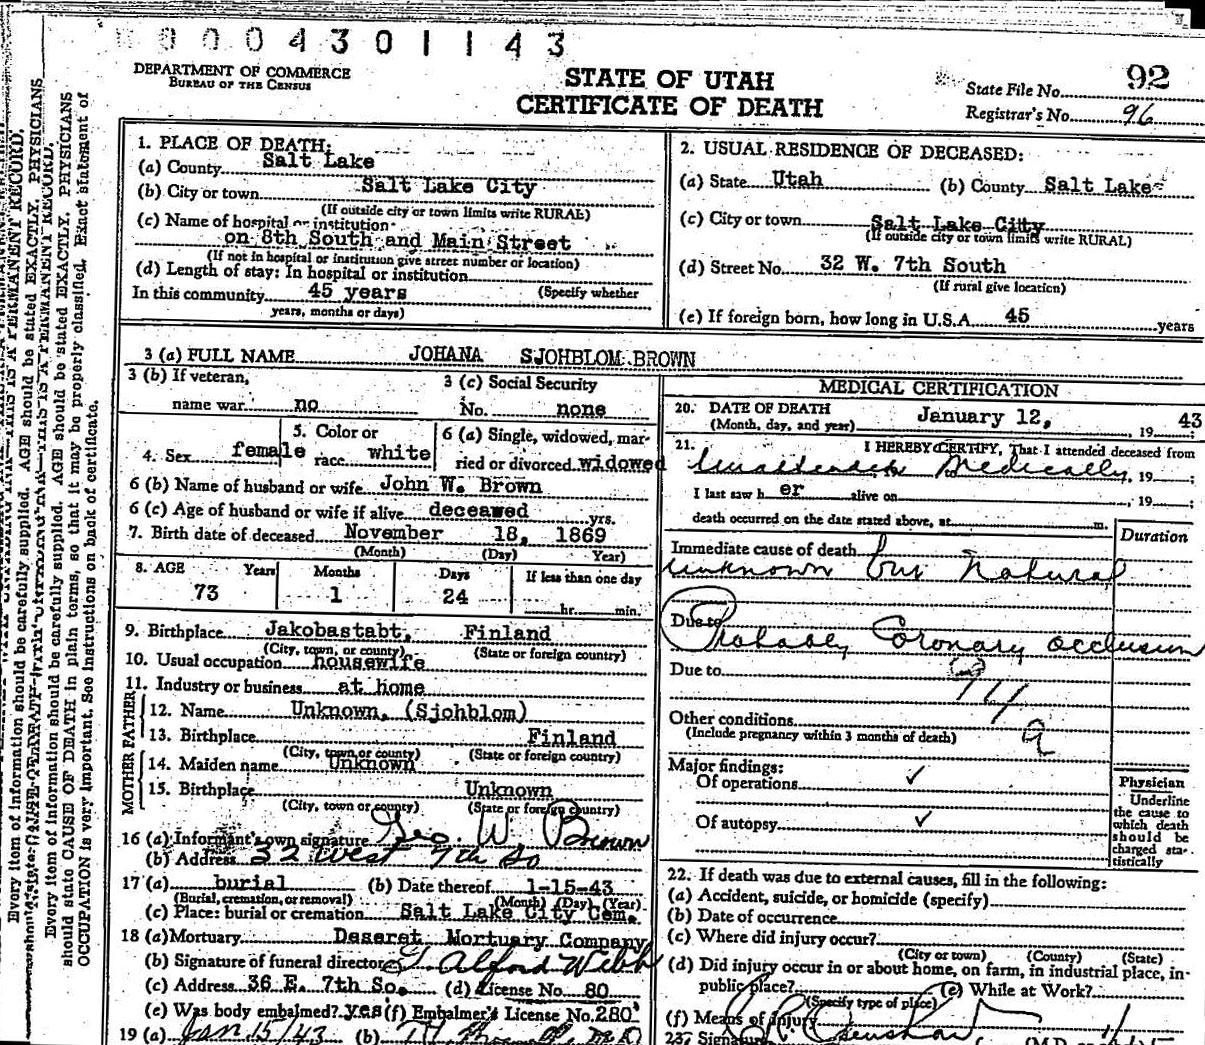 0 0 0 4 3 0 1 1 4 3
DEPARTMENT OF COMMERCE
BUREAU OF THE CENSUS
STATE OF UTAH
CERTIFICATE OF DEATH
State File No. 92
Registrar's No. 96
Every item of information should be carefully supplied. AGE should be stated EXACTLY. PHYSICIANS
should state CAUSE OF DEATH in plain terms, so that it may be properly classified. Exact statement of
OCCUPATION is very important. See instructions on back of certificate.
1. PLACE OF DEATH:
(a) County Salt Lake
(b) City or town Salt Lake City
(If outside city or town limits write RURAL)
(c) Name of hospital or institution
on 8th South and Main Street
(If not in hospital or institution give street number or location)
(d) Length of stay: In hospital or institution
In this community 45 years (Specify whether
years, months or days)
2. USUAL RESIDENCE OF DECEASED:
(a) State Utah (b) County Salt Lake
(c) City or town Salt Lake City
(If outside city or town limits write RURAL)
(d) Street No. 32 W. 7th South
(If rural give location)
(e) If foreign born, how long in U.S.A. 45 years
3 (a) FULL NAME JOHANA SJOHBLOM BROWN
3 (b) If veteran,
name war no
3 (c) Social Security
No. none
4. Sex female
5. Color or
race white
6 (a) Single, widowed, mar-
ried or divorced widowed
6 (b) Name of husband or wife John W. Brown
6 (c) Age of husband or wife if alive deceased yrs.
7. Birth date of deceased November 18, 1869
(Month) (Day) Year)
8. AGE Years Months Days If less than one day
73 1 24 hr. min.
9. Birthplace Jakobastabt, Finland
(City, town, or county) (State or foreign country)
10. Usual occupation housewife
11. Industry or business at home
FATHER
12. Name Unknown, (Sjohblom)
13. Birthplace Finland
(City, town or county) (State or foreign country)
MOTHER
14. Maiden name Unknown
15. Birthplace Unknown
(City, town or county) (State or foreign country)
16 (a) Informant's own signature Geo. W Brown
(b) Address 32 West 7th So
17 (a) burial (b) Date thereof 1-15-43
(Burial, cremation, or removal) (Month) (Day) (Year)
(c) Place: burial or cremation Salt Lake City Cem.
18 (a) Mortuary Deseret Mortuary Company
(b) Signature of funeral director
(c) Address 36 E. 7th So. (d) License No. 80
(e) Was body embalmed? yes (f) Embalmer's License No. 280
19 (a) Jan 15/43 (b)
MEDICAL CERTIFICATION
20. DATE OF DEATH
(Month, day, and year) January 12, 19 43
21. I HEREBY CERTIFY, That I attended deceased from
Unattended Medically, 19 ;
I last saw h er alive on , 19 ;
death occurred on the date stated above, at m.
Duration
Immediate cause of death
unknown but Natural
Due to
Probably Coronary occlusion
Due to
94
a
Other conditions
(Include pregnancy within 3 months of death)
Major findings:
Of operations ✓
Of autopsy ✓
Physician
Underline
the cause to
which death
should be
charged sta-
tistically
22. If death was due to external causes, fill in the following:
(a) Accident, suicide, or homicide (specify)
(b) Date of occurrence
(c) Where did injury occur?
(City or town) (County) (State)
(d) Did injury occur in or about home, on farm, in industrial place, in-
public place? (e) While at Work?
(Specify type of place)
(f) Means of injury
23. Signature